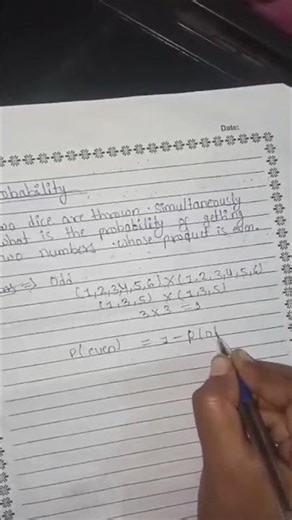 Date:
obability
wo dice are thrown simultaneously
what is the probability of getting
two numbers whose product is even.
=> Odd
(1,2,3,4,5,6) × (1,2,3,4,5,6)
(1,3,5) × (1,3,5)
3 × 3 = 9
P(even) = 1 - P(o